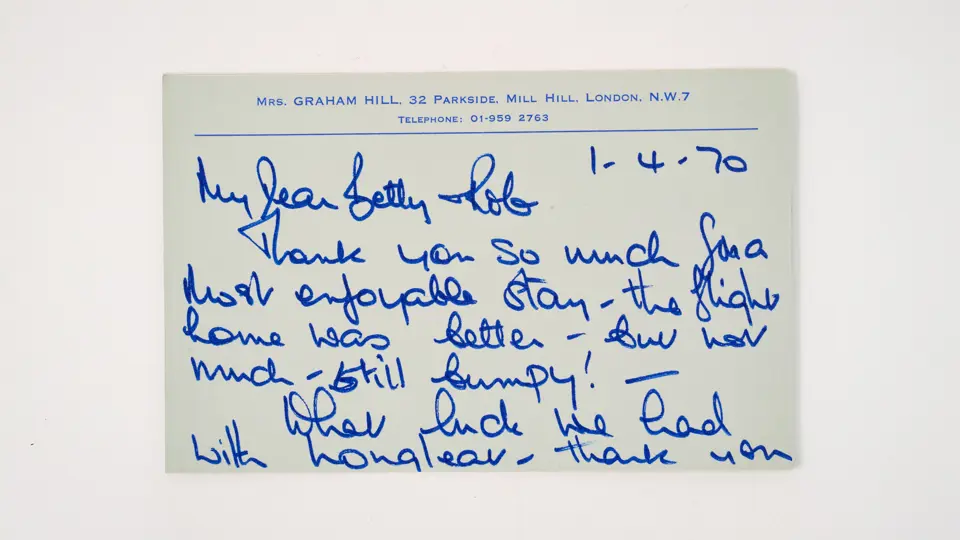 Mrs. GRAHAM HILL, 32 Parkside, Mill Hill, London, N.W.7
Telephone: 01-959 2763
1-4-70
My Dear Betty + Rob
Thank you so much for a
most enjoyable stay - the flight
home was better - but not
much - still bumpy! —
What luck we had
with - thank you